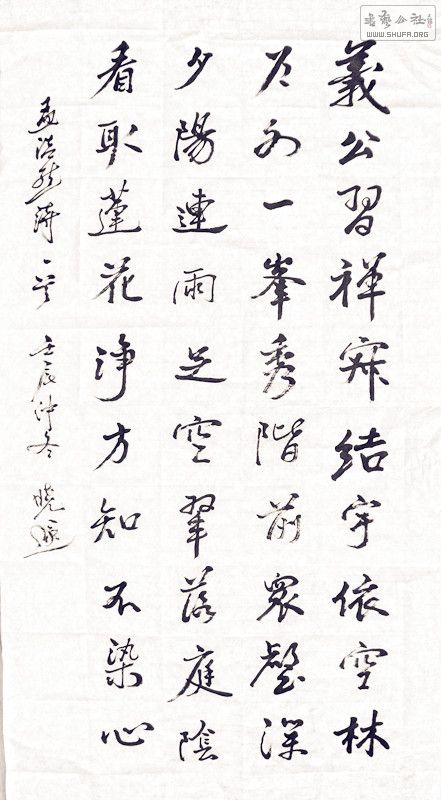 書藝公社
WWW.SHUFA.ORG
義公習禅寂結宇依空林
户外一峯秀階前衆壑深
夕陽連雨足空翠落庭陰
看取蓮花淨方知不染心
孟浩然詩一首 壬辰仲冬 曉